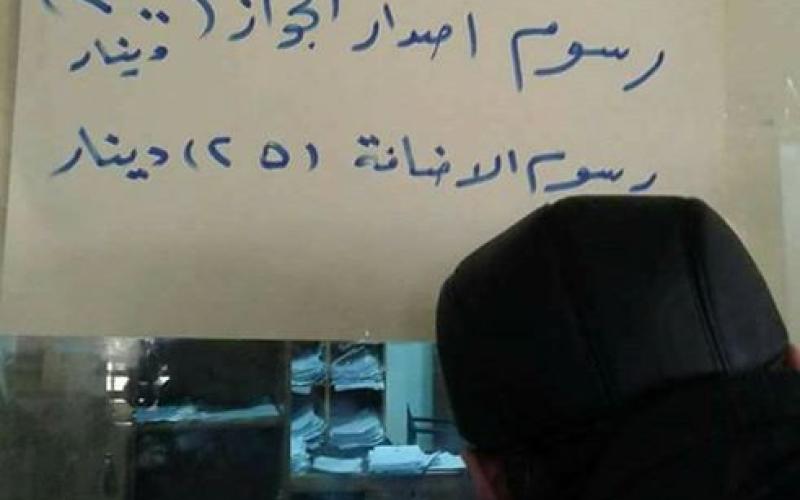 رسوم اصدار الجواز (٢٠٠)
دينار
رسوم الاضافة (٢٥) دينار